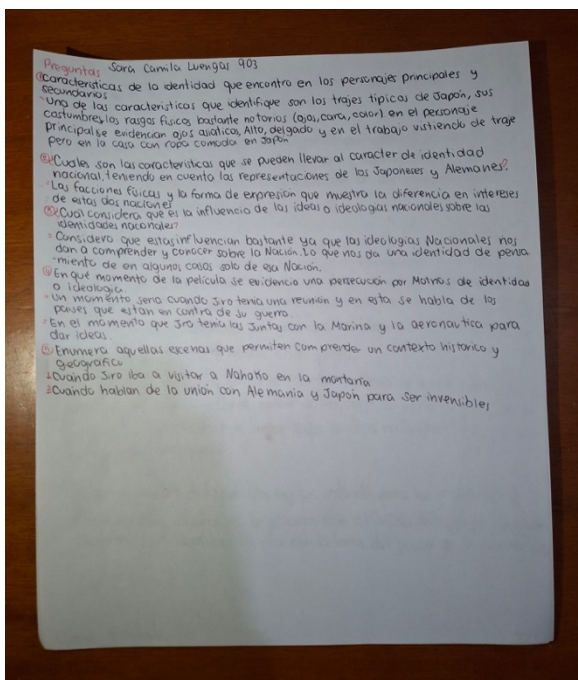 Preguntas Sara Camila Luengas 903
① Caracteristicas de la identidad que encontro en los personajes principales y
secundarios
- Una de las caracteristicas que identifique son los trajes tipicos de Japón, sus
costumbres, los rasgos fisicos bastante notorios (ojos, cara, color) en el personaje
principal se evidencian ojos asiaticos, Alto, delgado y en el trabajo vistiendo de traje
pero en la casa con ropa comoda en Japón
② Cuales son las caracteristicas que se pueden llevar al caracter de identidad
nacional, teniendo en cuenta las representaciones de los Japoneses y Alemanes?
- Las facciones fisicas y la forma de expresion que muestra la diferencia en intereses
de estas dos naciones
③ ¿Cual considera que es la influencia de las ideas o ideologias nacionales sobre las
identidades nacionales?
- Considero que estas influencian bastante ya que las ideologias Nacionales nos
dan a comprender y conocer sobre la Nación. Lo que nos da una identidad de pensa
-miento de en algunos casos solo de esa Nación.
④ En qué momento de la pelicula se evidencia una persecución por Motivos de identidad
o ideologia
- Un momento seria cuando Jiro tenia una reunión y en esta se habla de los
paises que estan en contra de su guerra.
- En el momento que Jiro tenia las Juntas con la Marina y la aeronautica para
dar ideas.
⑤ Enumera aquellas escenas que permiten comprender un contexto historico y
geografico
1. Cuando Jiro iba a visitar a Nahoko en la montaña
2. Cuando hablan de la unión con Alemania y Japón para ser invensibles